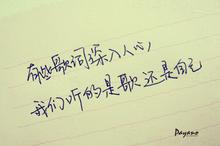 有些歌词深入人心
我们听的是歌还是自己
Dayano